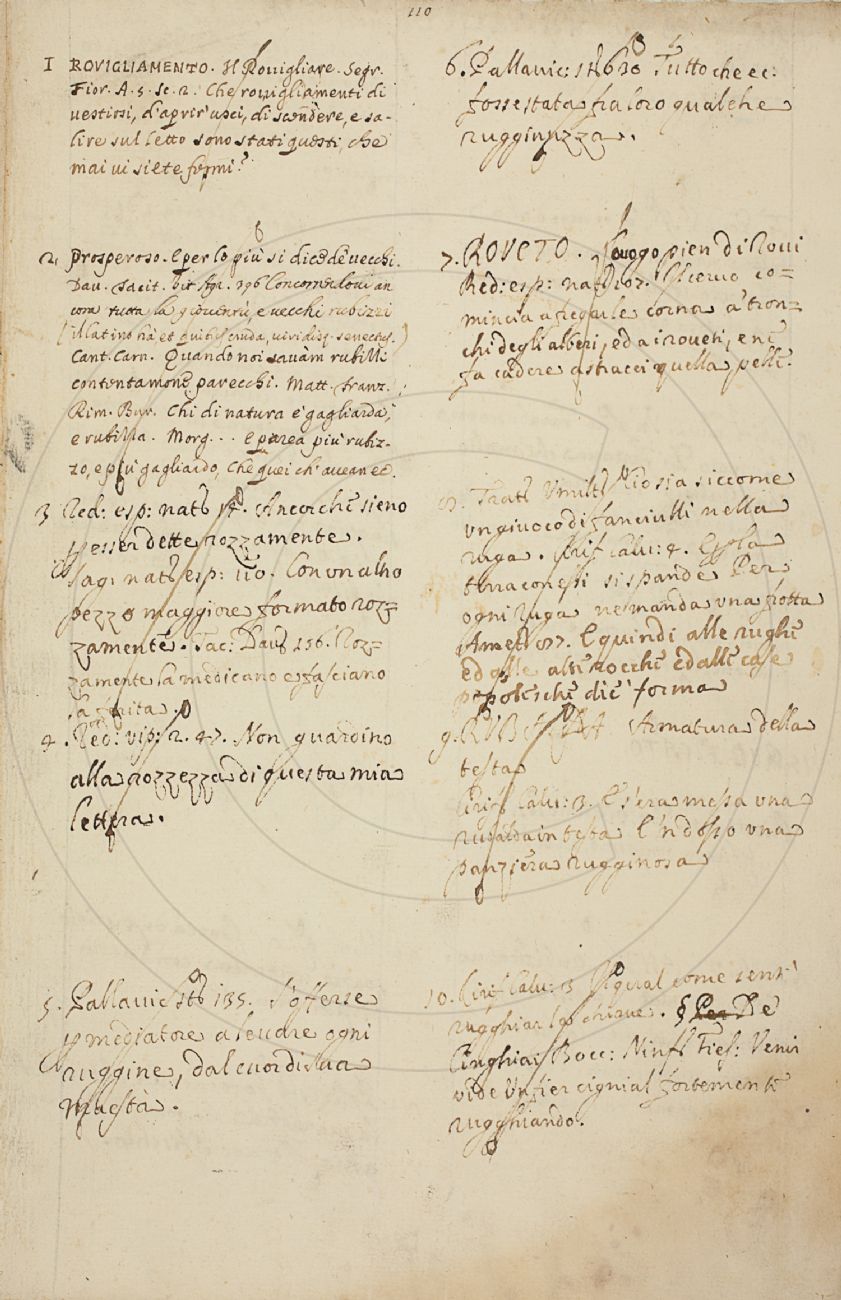 110
1 ROVIGLIAMENTO. Il Rovigliare. Segr.
Fior. A. 5. Sc. 2. Che rovigliamenti di
vestirsi, d'aprir' usci, di scendere, e sa-
lire sul letto sono stati questi, che
mai vi siete fermi?
2 Prosperoso. e per lo più si dice de vecchi.
Dav. Tacit. Vit. Agr. 396
cora tutta la gioventù, e vecchi rubizzi
(il latino hà et quibus cruda, viridisq. senectus.)
Cant. Carn. Quando noi savàm rubizzi
contentamone parecchi. Matt. Franz.
Rim. Bur. Chi di natura è gagliarda,
e rubizza. Morg... e parea più rubiz-
zo, e più gagliardo, Che quei ch' avean ec.
3 Red: esp: nat: Ancorchè sieno
p esser dette rozzamente.
Sag: nat: esp: 110. Con un altro
pezzo maggiore formato roz=
zamente. Tac: Dav: 156. Roz=
zamente la medicano e fasciano
la ferita.
4. Red: vip: 2. 47. Non guardino
alla rozzezza di questa mia
lettera.
5. Pallavic: st: 135. S'offerse
p mediatore a levare ogni
ruggine, dal cuor di sua
Maestà.
6. Pallavic: st: 630 Tutto che ec:
fosse stata fra loro qualche
rugginuzza.
7. ROVETO. Luogo pien di Rovi
Red: esp: nat: 107. Il cervo co=
mincia a fregare le corna a' tron=
chi degli alberi, ed a i roveti, e ne
fa cadere a stracci quella pelle.
8. Tratt: Umilt: Idio sia siccome
un giuoco di fanciulli nella
ruga. Cirif. Calv: 4. E per la
terra così si spande Per
ogni ruga ne manda una frotta
Amet: 97. E quindi alle rughe
ed alle alte rocche ed alle case
popolesche diè forma
9. RUBALDA Armatura della
testa
Cirif. Calv: 3. E s'era messa una
rubalda in testa E 'n dosso una
panziera rugginosa
10. Cirif. Calv: 3 Il qual come sentì
rugghiar la chiave. § Per De
Cinghiai Bocc: Ninf: Fies: Venir
vide un fier cignial fortemente
rugghiando.